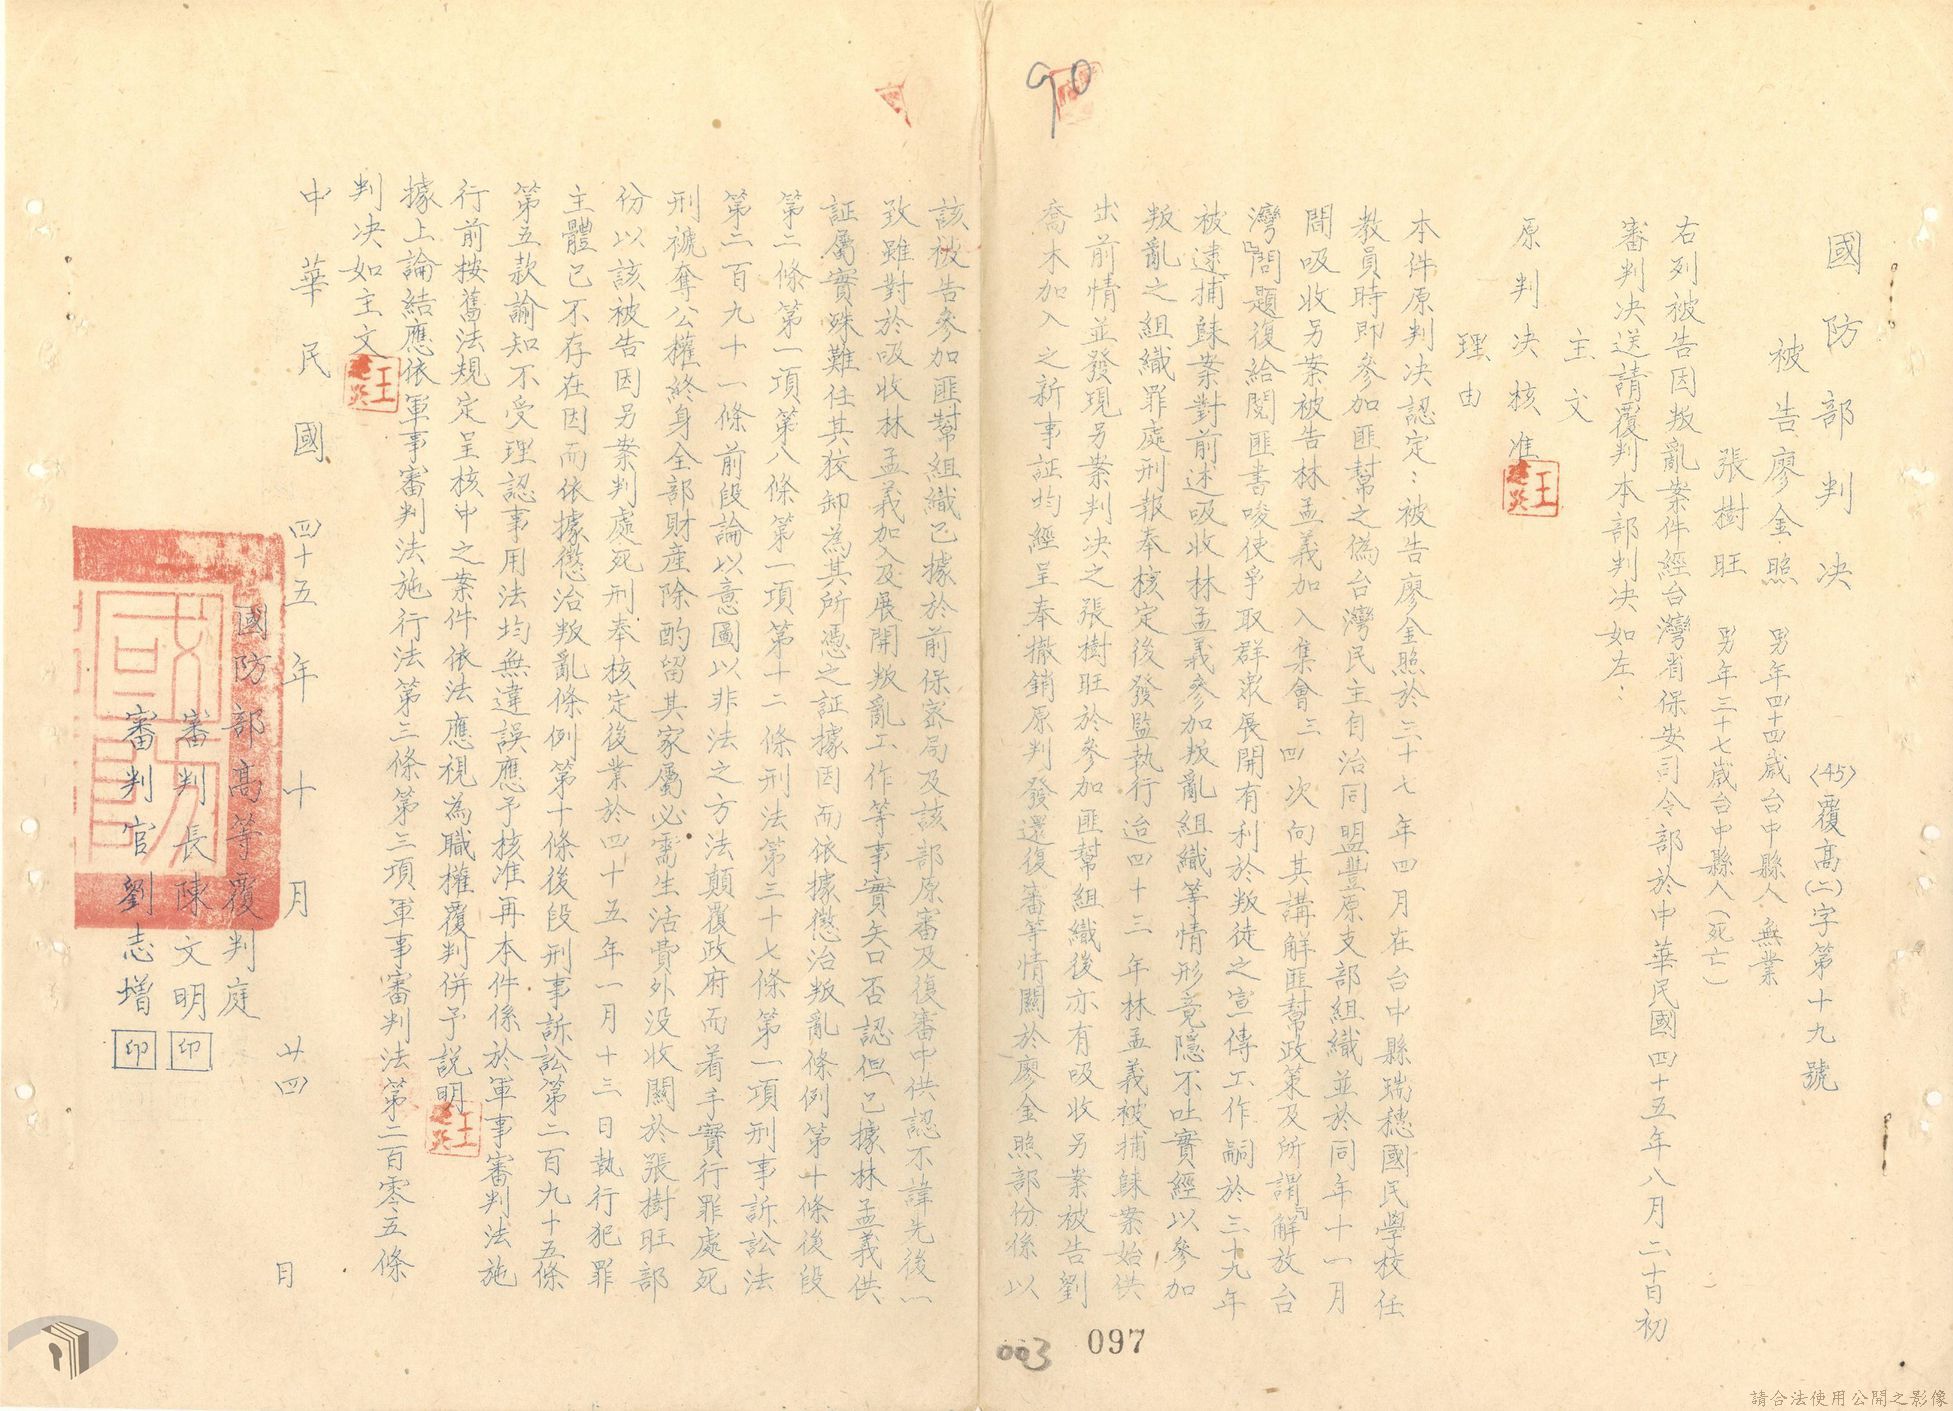 90
國防部判決
(45)覆高(二)字第十九號
被告廖金照 男年四十四歲台中縣人無業
張樹旺 男年三十七歲台中縣人(死亡)
右列被告因叛亂案件經台灣省保安司令部於中華民國四十五年八月二十日初
審判決送請覆判本部判決如左:
主文
原判決核准
理由
本件原判決認定:被告廖金照於三十七年四月在台中縣瑞穗國民學校任
教員時即參加匪幫之偽台灣民主自治同盟豐原支部組織並於同年十一月
間吸收另案被告林孟義加入集會三四次向其講解匪幫政策及所謂「解放台
灣」問題復給閱匪書唆使爭取群眾展開有利於叛徒之宣傳工作嗣於三十九年
被逮捕歸案對前述吸收林孟義參加叛亂組織等情形竟隱不吐實經以參加
叛亂之組織罪處刑報奉核定後發監執行迨四十三年林孟義被捕歸案始供
出前情並發現另案判決之張樹旺於參加匪幫組織後亦有吸收另案被告劉
喬木加入之新事証均經呈奉撤銷原判發還復審等情關於廖金照部份係以
該被告參加匪幫組織已據於前保密局及該部原審及復審中供認不諱先後一
致雖對於吸收林孟義加入及展開叛亂工作等事實矢口否認但已據林孟義供
証屬實殊難任其狡卸為其所憑之証據因而依據懲治叛亂條例第十條後段
第二條第一項第八條第一項第十二條刑法第三十七條第一項刑事訴訟法
第二百九十一條前段論以意圖以非法之方法顛覆政府而着手實行罪處死
刑褫奪公權終身全部財產除酌留其家屬必需生活費外沒收關於張樹旺部
份以該被告因另案判處死刑奉核定後業於四十五年一月十三日執行犯罪
主體已不存在因而依據懲治叛亂條例第十條後段刑事訴訟第二百九十五條
第五款諭知不受理認事用法均無違誤應予核准再本件係於軍事審判法施
行前按舊法規定呈核中之案件依法應視為職權覆判併予說明
據上論結應依軍事審判法施行法第三條第三項軍事審判法第二百零五條
判決如主文
中華民國四十五年十月廿四日
國防部高等覆判庭
審判長陳文明 印
審判官劉志增 印
003
097
請合法使用公開之影像